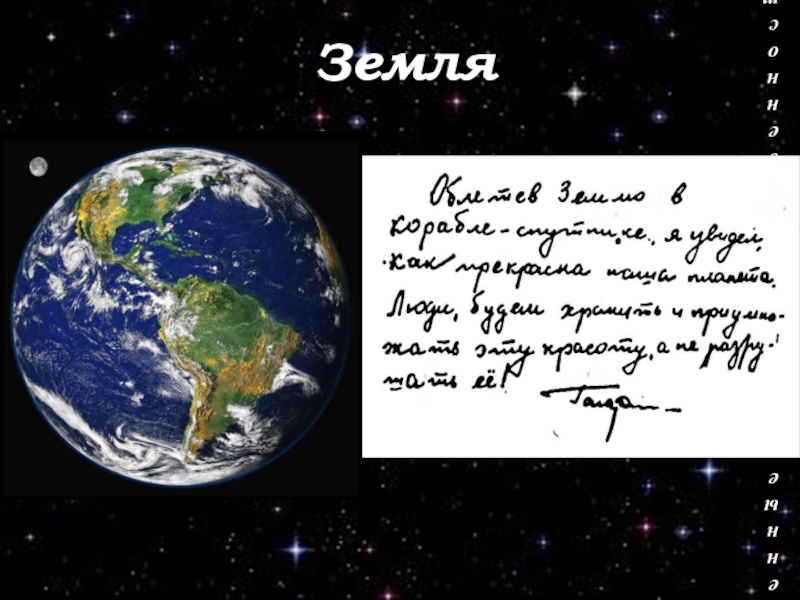 Земля
Облетев Землю в
корабле-спутнике, я увидел,
как прекрасна наша планета.
Люди, будем хранить и приумно-
жать эту красоту, а не разру-
шать её!
Гагарин